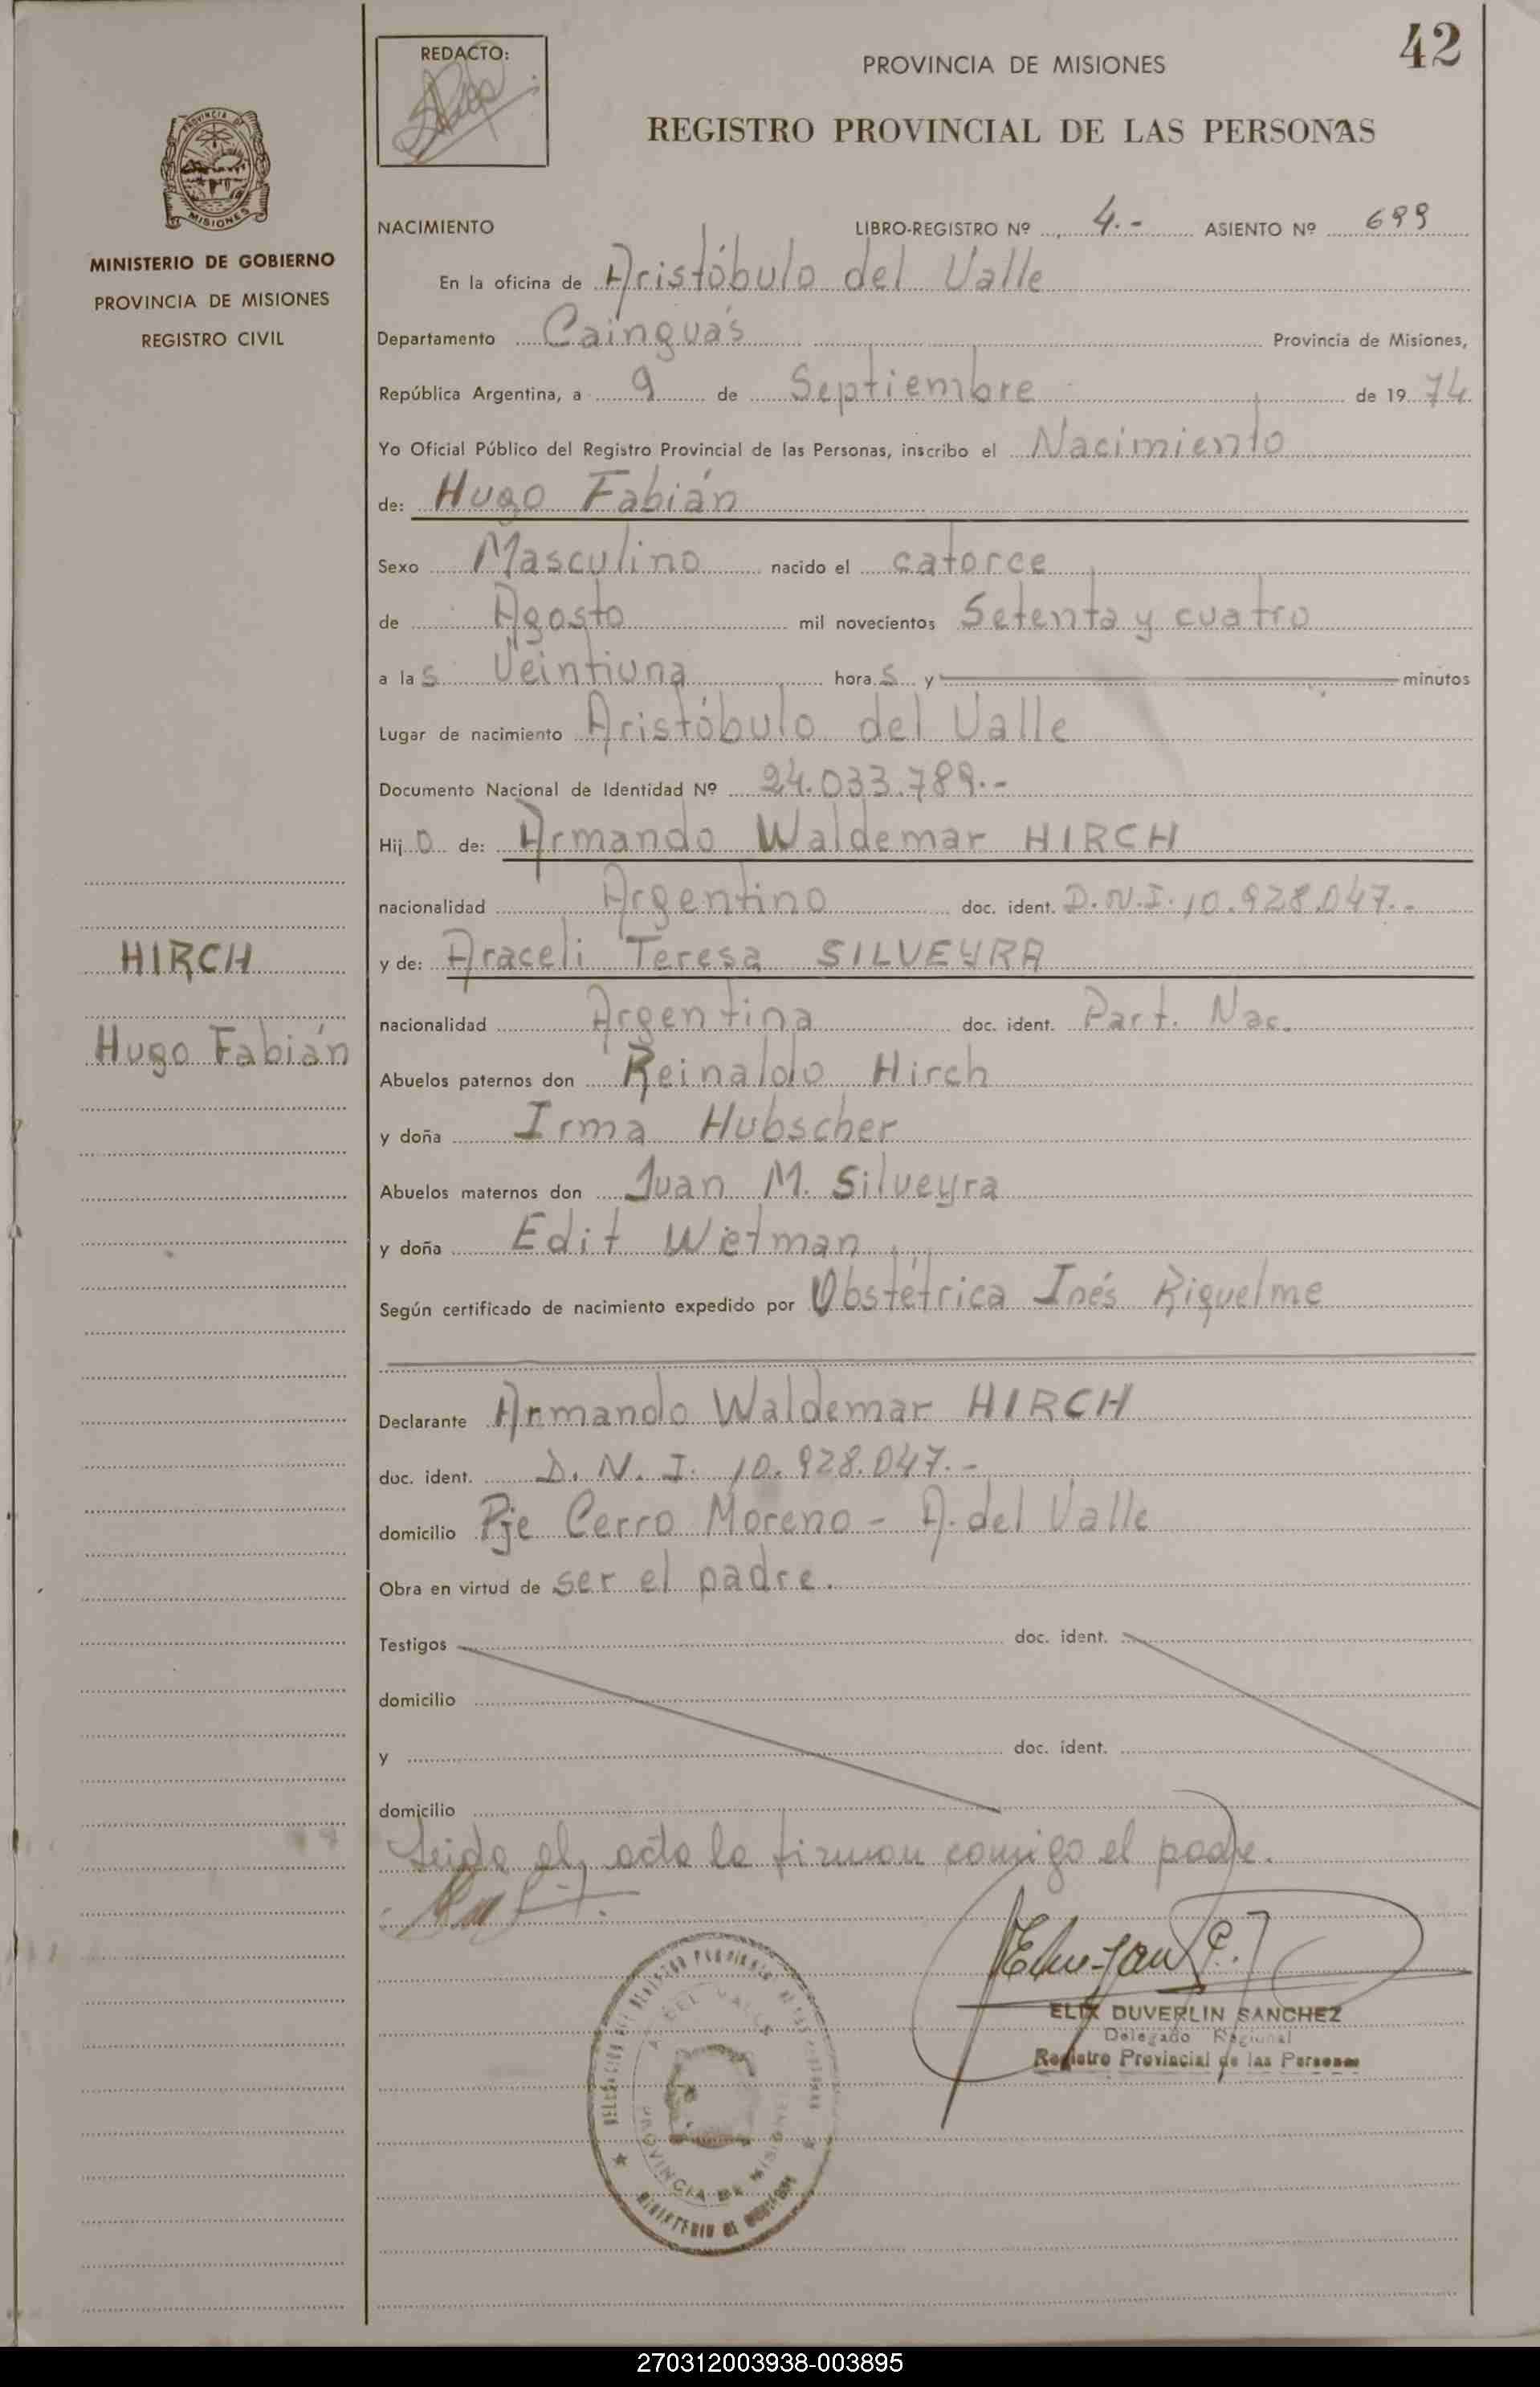 42
REDACTO:
PROVINCIA DE MISIONES
REGISTRO PROVINCIAL DE LAS PERSONAS
PROVINCIA DE
MISIONES
MINISTERIO DE GOBIERNO
PROVINCIA DE MISIONES
REGISTRO CIVIL
NACIMIENTO LIBRO-REGISTRO Nº 4.- ASIENTO Nº 699
En la oficina de Aristóbulo del Valle
Departamento Cainguás Provincia de Misiones,
República Argentina, a 9 de Septiembre de 1974
Yo Oficial Público del Registro Provincial de las Personas, inscribo el Nacimiento
de: Hugo Fabián
Sexo Masculino nacido el catorce
de Agosto mil novecientos Setenta y cuatro
a las Veintiuna horas y minutos
Lugar de nacimiento Aristóbulo del Valle
Documento Nacional de Identidad Nº 24.033.789.-
Hijo de: Armando Waldemar HIRCH
nacionalidad Argentino doc. ident. D.N.I. 10.928.047.-
HIRCH
y de: Araceli Teresa SILVEYRA
nacionalidad Argentina doc. ident. Part. Nac.
Hugo Fabián
Abuelos paternos don Reinaldo Hirch
y doña Irma Hubscher
Abuelos maternos don Juan M. Silveyra
y doña Edit Wietman
Según certificado de nacimiento expedido por Obstétrica Inés Riquelme
Declarante Armando Waldemar HIRCH
doc. ident. D.N.I. 10.928.047.-
domicilio Pje Cerro Moreno - A. del Valle
Obra en virtud de ser el padre.
Testigos doc. ident.
domicilio
y doc. ident.
domicilio
Leida el acta la firman comigo el padre.
ELIX DUVERLIN SANCHEZ
Delegado Regional
Registro Provincial de las Personas
DEL VALLE
PROVINCIA DE MISIONES
MINISTERIO DE GOBIERNO
270312003938-003895